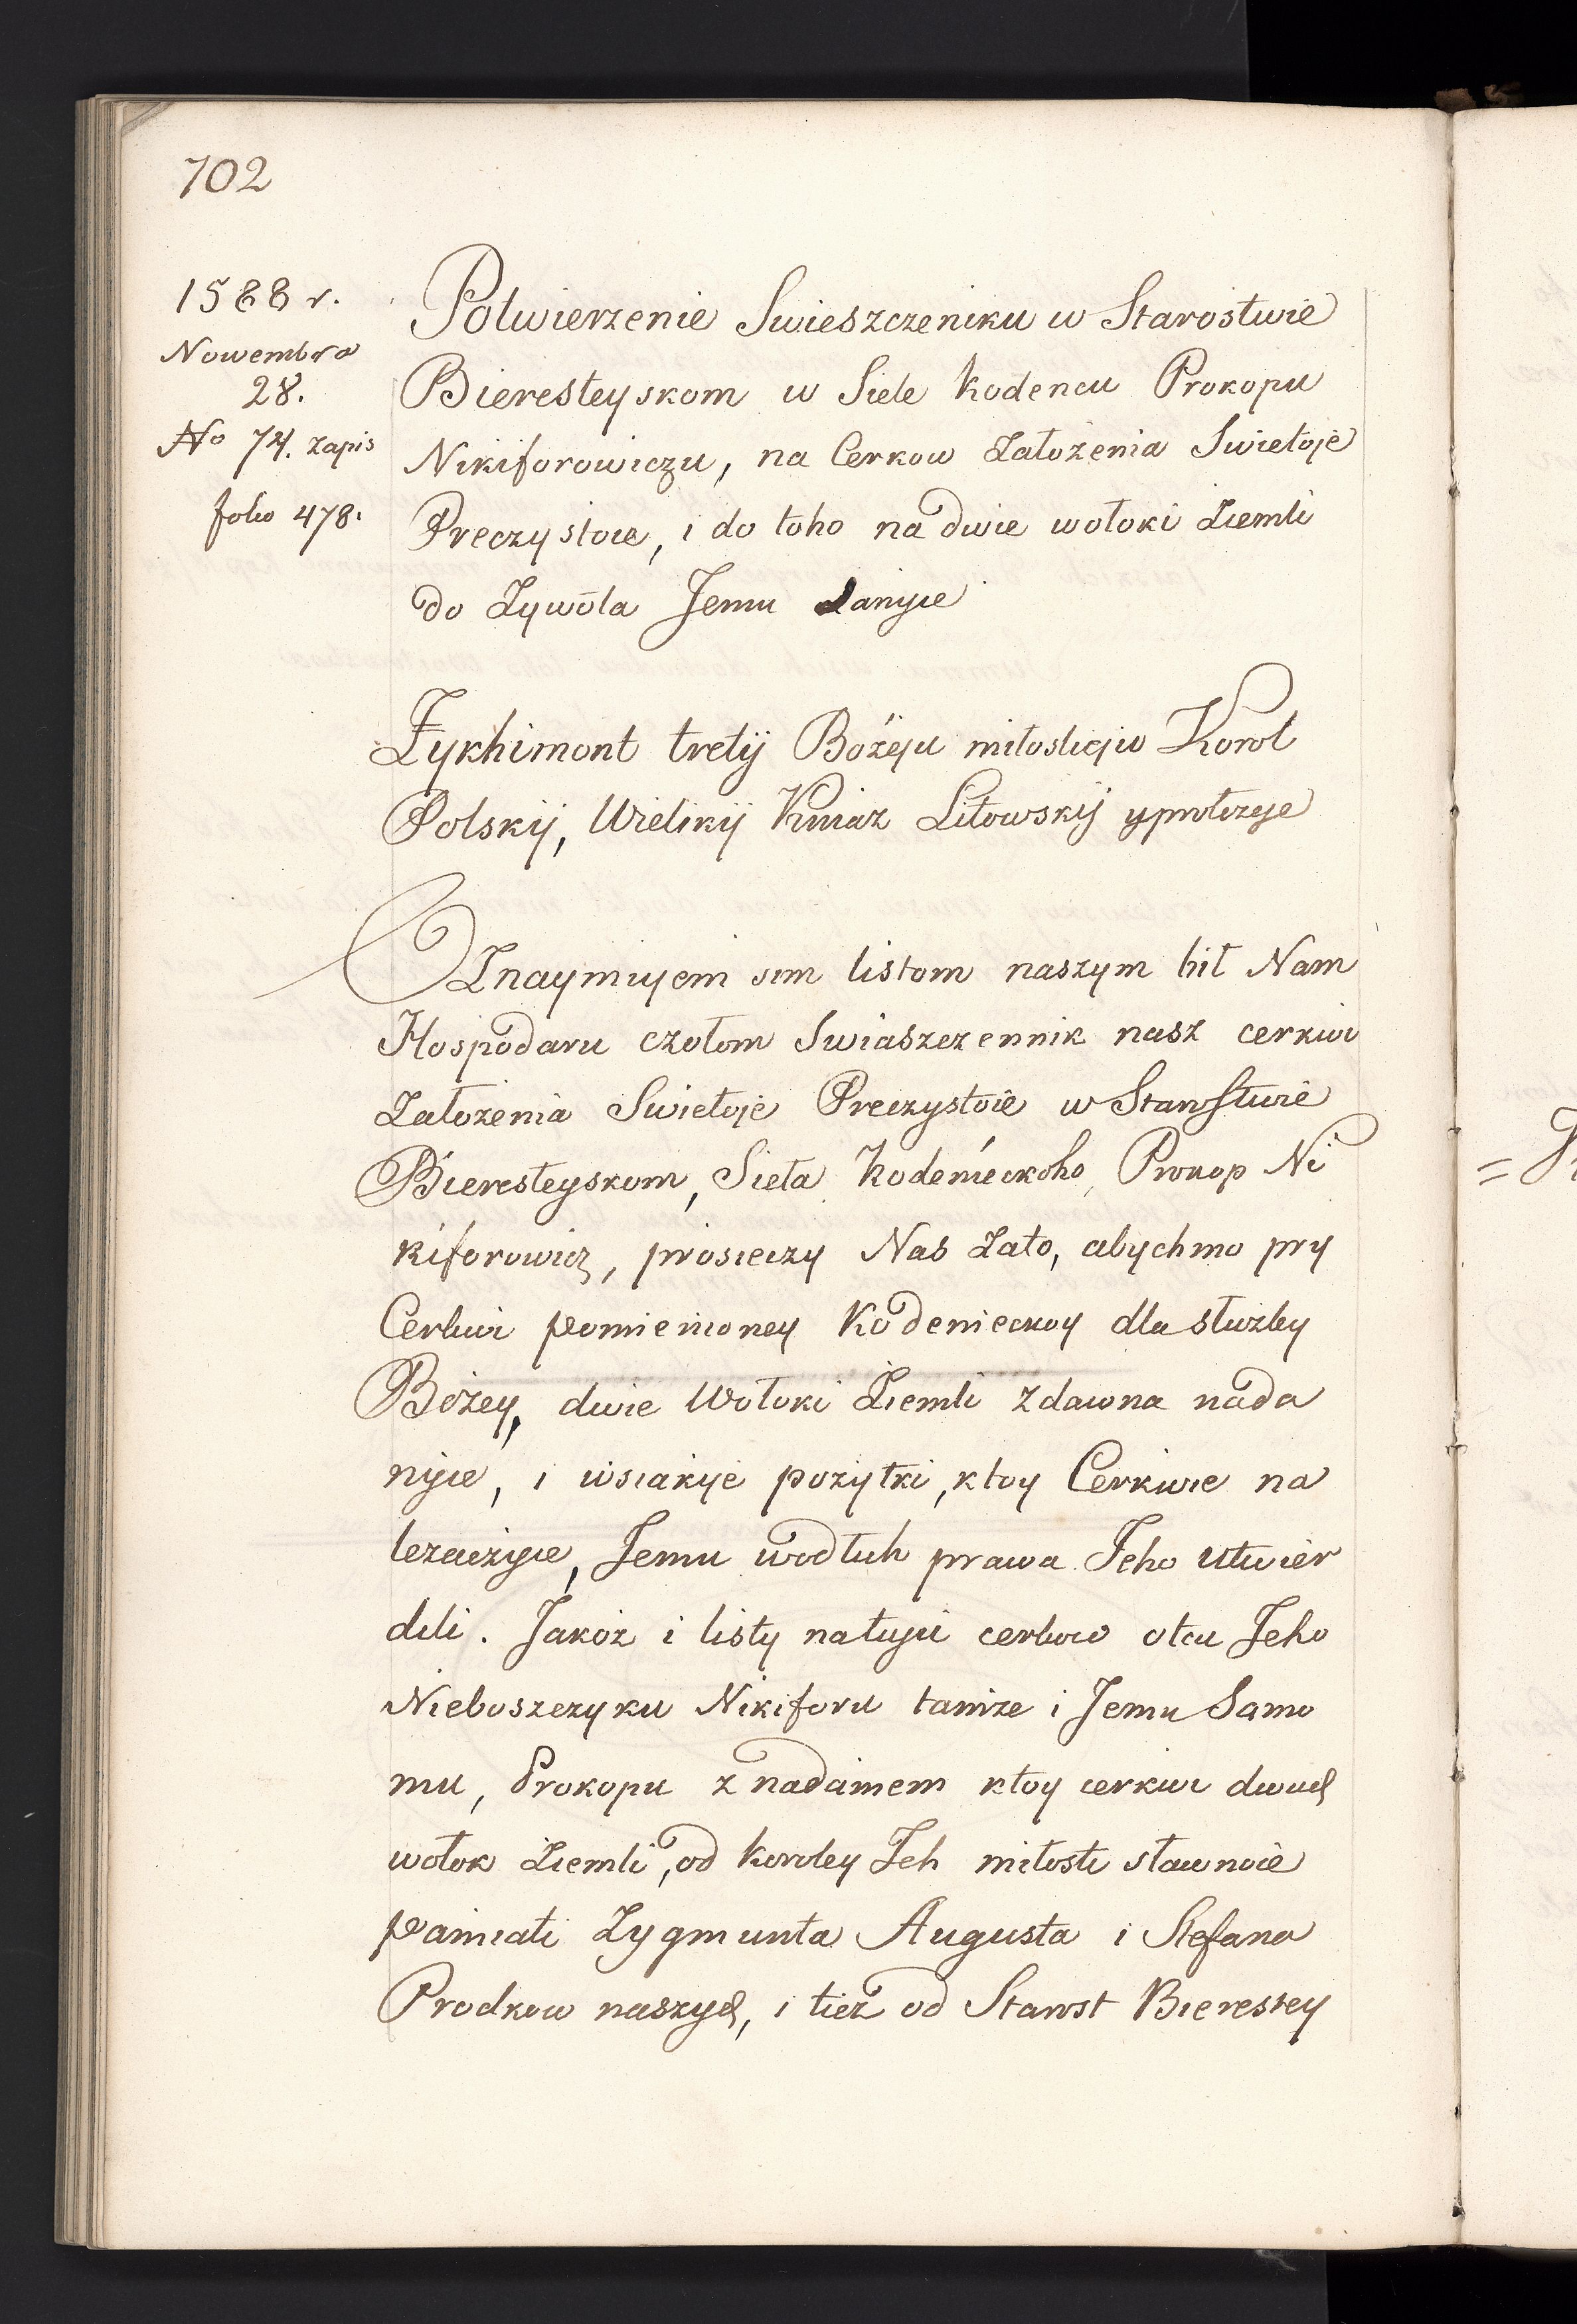 702
1588 r.
Nowembra
28.
No 74. zapis
folio 478.
Potwierzenie Swieszczeniku w Starostwie
Bieresteyskom w Siele Kodencu Prokopu
Nikiforowiczu, na Cerkow Założenia Swietoje
Preczystoie, i do toho na dwie wołoki Ziemli
do Żywota Jemu danyie
Żykhimont tretij Bożeju miłostieju Korol
Polskij, Wielikij Kniaz Litowskij y protczyje
Oznaymuyem sim listom naszym bił Nam
Hospodaru czołom Swiaszczennik nasz cerkwi
Załozenia Swietoje Preczystoie w Starostwie
Bieresteyskom, Sieła Kodenieckoho, Prokop Ni
kiforowicz, prosieczy Nas Zato, abychmo pry
Cerkwi pomienionej Kodenieckoy dla służby
Bożey, dwie Wołoki Ziemli zdawna nada
nyie, i wsiakije pożytki, ktoy Cerkwie na
lezaczyie, Jemu wodłuh prawa Jeho utwier
dili. Jakoż i listy natuju cerkow otcu Jeho
Nieboszczyku Nikiforu tamże i Jemu Samo
mu, Prokopu z nadaniem ktoy cerkwi dwuch
wołok Ziemli, od Koroley Jeh miłosti sławnoie
pamiati Zygmunta Augusta i Stefana
Prodkow naszych, i tież od Starost Bierestey